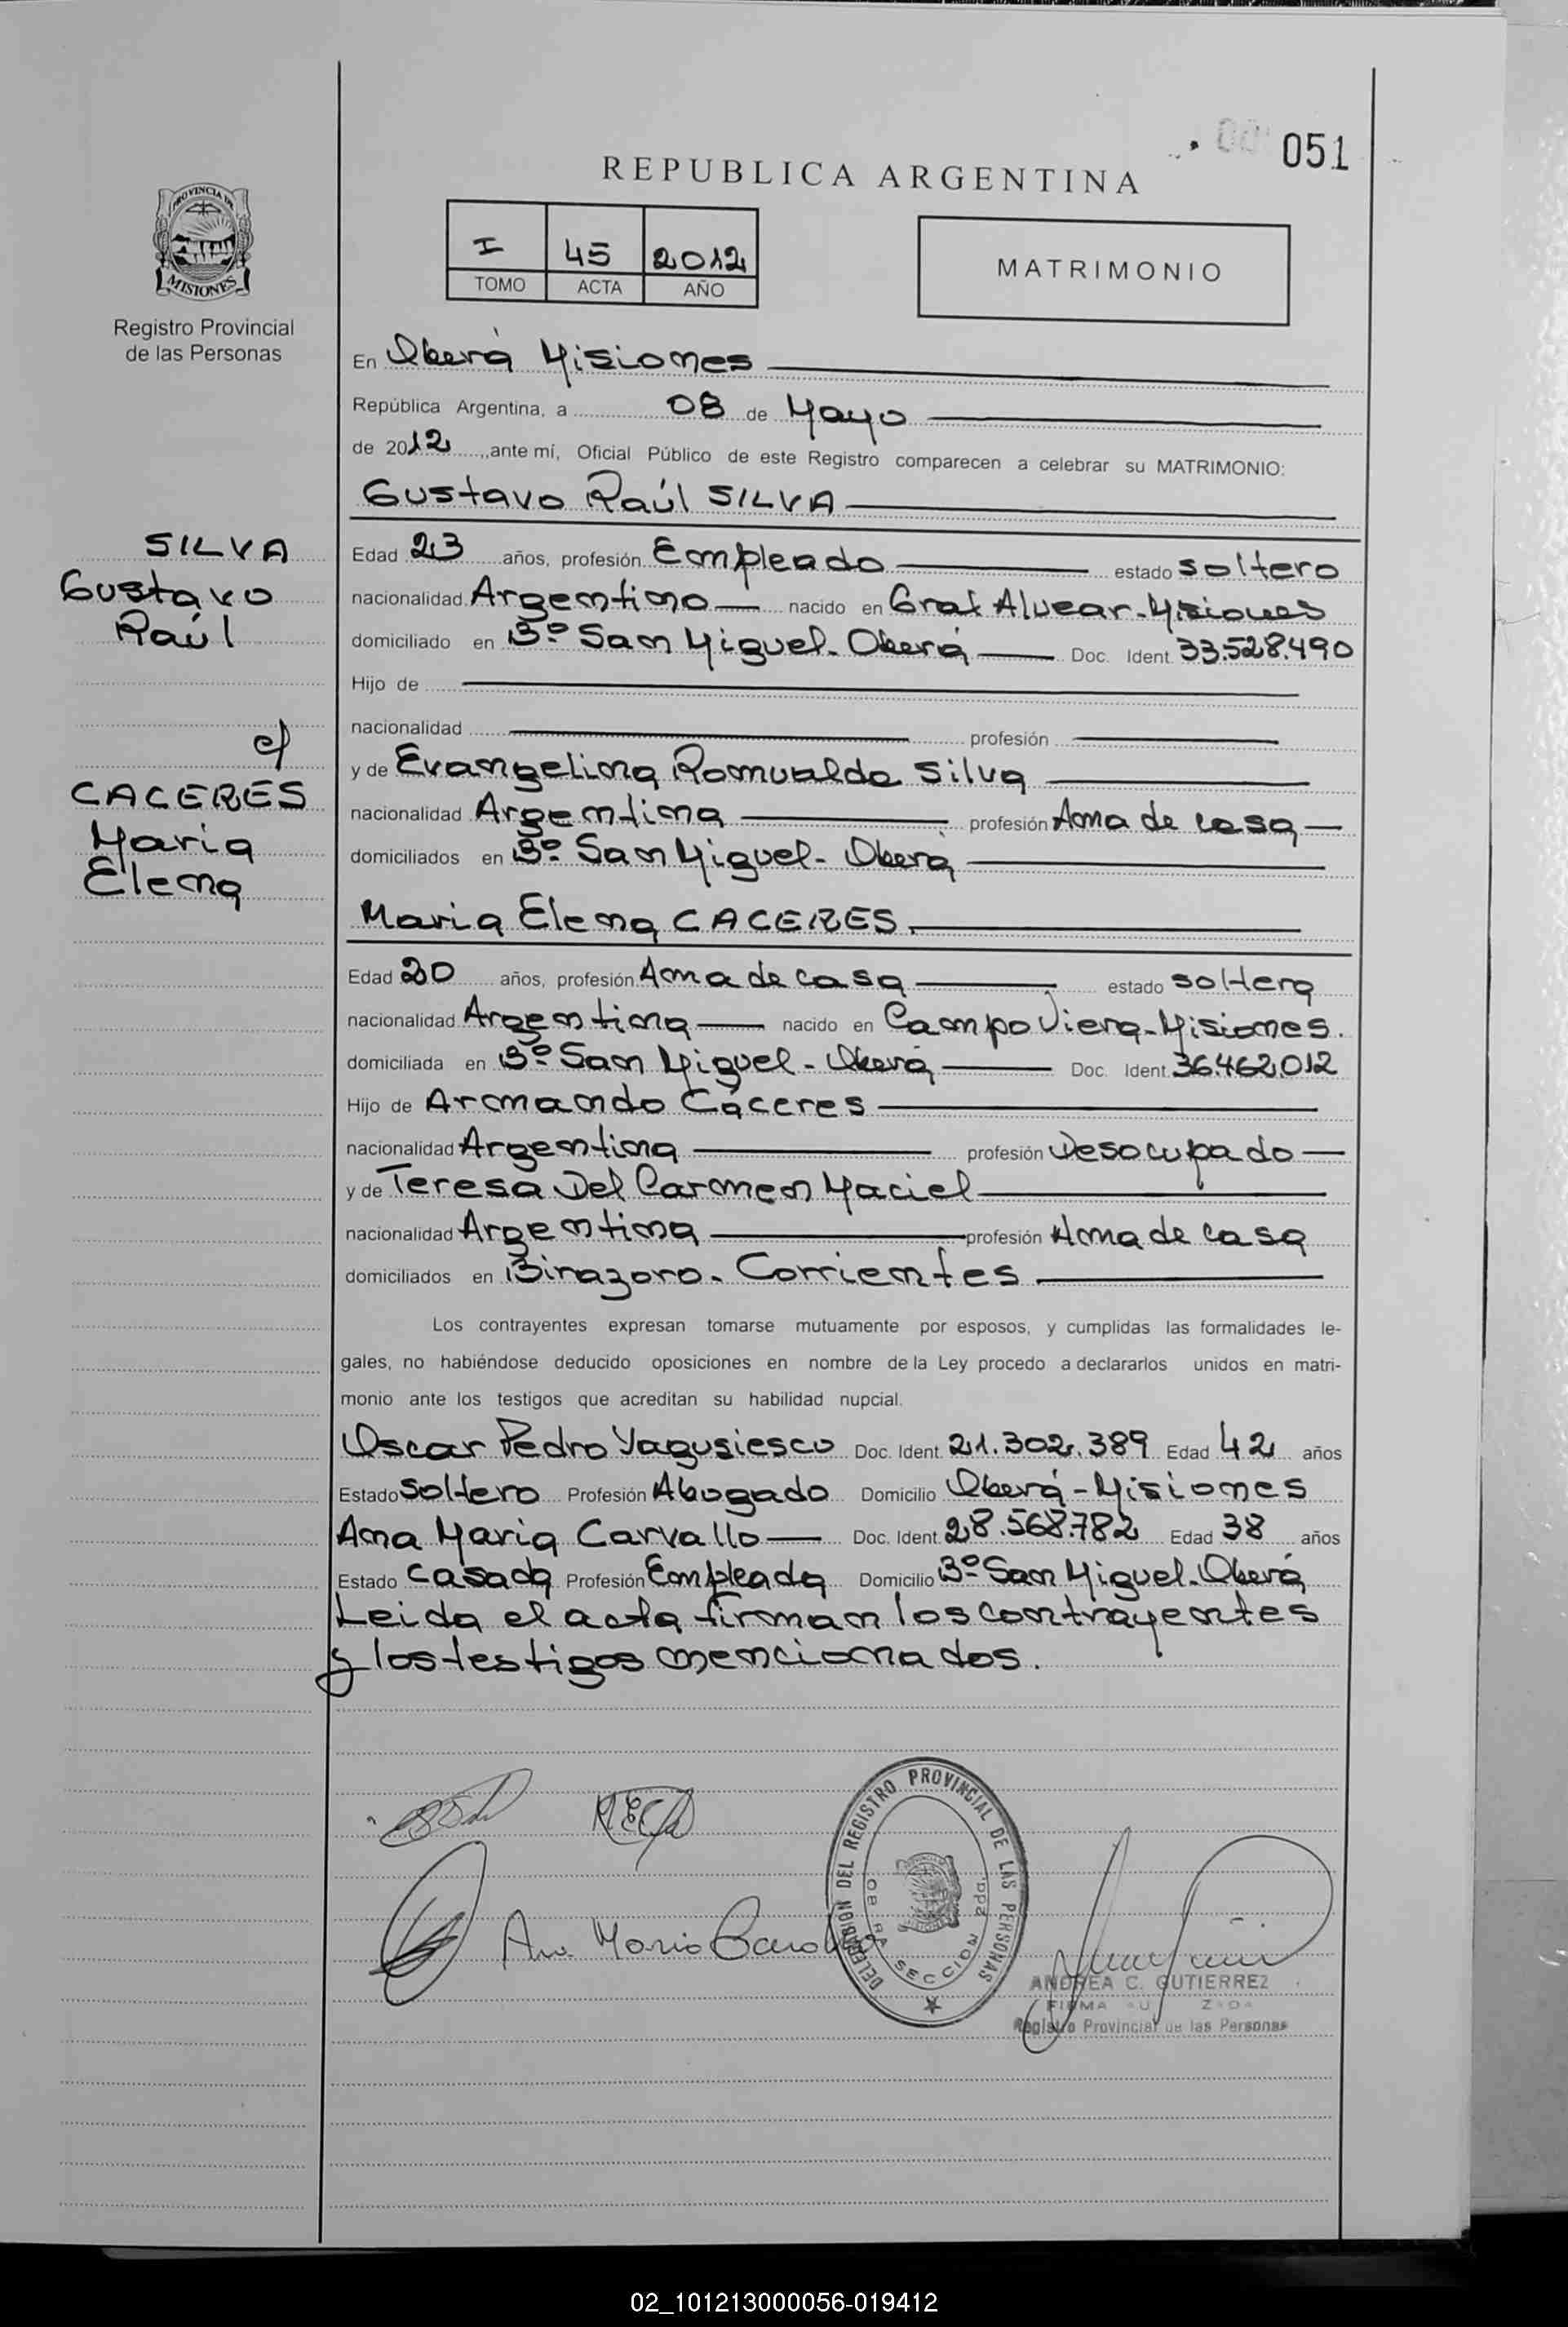 051
REPUBLICA ARGENTINA
PROVINCIA DE
MISIONES
I 45 2012
TOMO ACTA AÑO
MATRIMONIO
Registro Provincial
de las Personas
En Oberá Misiones
República Argentina, a 08 de Mayo
de 2012, ante mí, Oficial Público de este Registro comparecen a celebrar su MATRIMONIO:
Gustavo Raúl SILVA
SILVA
Gustavo
Raúl
c/
CACERES
Maria
Elena
Edad 23 años, profesión Empleado estado soltero
nacionalidad Argentino nacido en Gral Alvear-Misiones
domiciliado en Bº San Miguel-Oberá Doc. Ident. 33.528.490
Hijo de
nacionalidad profesión
y de Evangelina Romualda Silva
nacionalidad Argentina profesión Ama de casa
domiciliados en Bº San Miguel-Oberá
Maria Elena CACERES.
Edad 20 años, profesión Ama de casa estado soltera
nacionalidad Argentina nacido en Campo Viera-Misiones.
domiciliada en Bº San Miguel-Oberá Doc. Ident. 36.462.012
Hijo de Armando Cáceres
nacionalidad Argentina profesión Desocupado
y de Teresa Del Carmen Maciel
nacionalidad Argentina profesión Ama de casa
domiciliados en Birazoro-Corrientes
Los contrayentes expresan tomarse mutuamente por esposos, y cumplidas las formalidades le-
gales, no habiéndose deducido oposiciones en nombre de la Ley procedo a declararlos unidos en matri-
monio ante los testigos que acreditan su habilidad nupcial.
Oscar Pedro Yagusiesco Doc. Ident. 21.302.389 Edad 42 años
Estado soltero Profesión Abogado Domicilio Oberá-Misiones
Ana Maria Carvallo Doc. Ident. 28.568.782 Edad 38 años
Estado Casada Profesión Empleada Domicilio Bº San Miguel-Oberá
Leida el acta firman los contrayentes
y los testigos mencionados.
DELEGACION DEL REGISTRO PROVINCIAL DE LAS PERSONAS
SECCION 2da.
ANDREA C. GUTIERREZ
FIRMA
Registro Provincial de las Personas
02_101213000056-019412